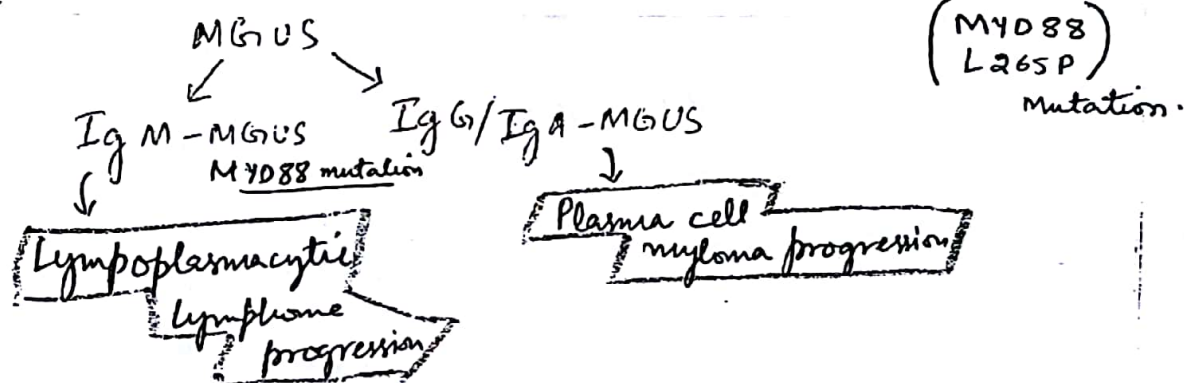 MGUS
(MYD88
L265P)
Mutation.
IgM-MGUS
MYD88 mutation
IgG/IgA-MGUS
Lympoplasmacytic
lymphome
progression
Plasma cell
myloma progression